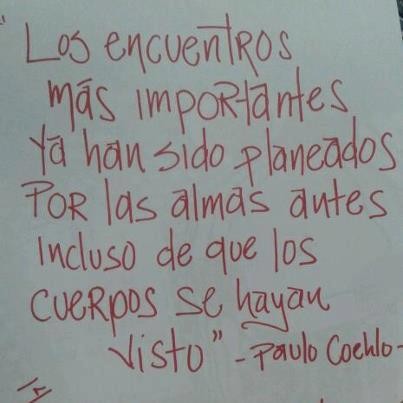 "
Los encuentros
más importantes
ya han sido planeados
por las almas antes
incluso de que los
cuerpos se hayan
visto" - Paulo Coehlo -
14